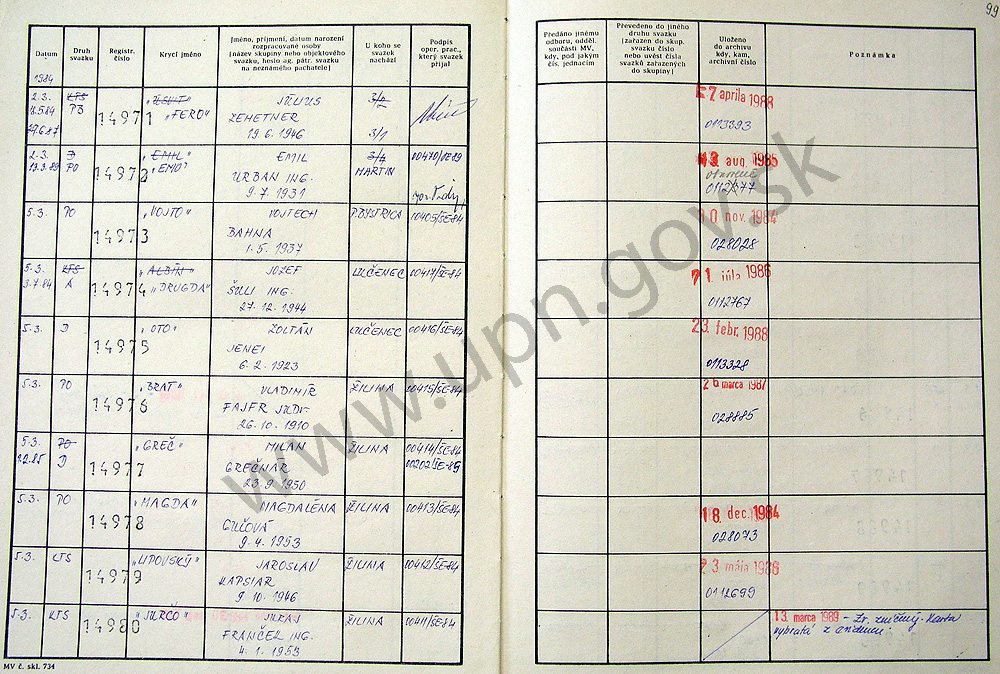 99
Datum
Druh svazku
Registr. číslo
Krycí jméno
Jméno, příjmení, datum narození
rozpracované osoby
[název skupiny nebo objektového
svazku, heslo ag. pátr. svazku
na neznámého pachatele]
U koho se
svazek
nachází
Podpis
oper. prac.,
který svazek
přijal
Předáno jinému
odboru, odděl.
součásti MV,
kdy, pod jakým
čís. jednacím
Převedeno do jiného
druhu svazku
[zařazen do skup.
svazku číslo
nebo uvést čísla
svazků zařazených
do skupiny]
Uloženo
do archivu
kdy, kam,
archivní číslo
Poznámka
1984
2.3. KTS JÚLIUS 3/2 7 aprila 1988
PO 14971 "FERO" ZEMETNER
19.6.1946 3/1 0113393
2.3. D "EMIL" EMIL 3/4 00470/ 13 aug. 1985
PO 14972 "EMO" URBAN ING. MARTIN
9.7.1931
5.3. PO "VOJTO" VOJTECH P.BYSTRICA 00405/ŠE-84 10 nov. 1984
14973 BAHNA 028028
1.5.1937
5.3. KTS "ALBÍN" JOZEF LUČENEC 00417/ŠE-84 21 júla 1986
3.7.84 A 14974 "DRUGDA" ŠULI ING. 0112767
27.12.1944
5.3. D "OTO" ZOLTÁN LUČENEC 00416/ŠE-84 23. febr. 1988
14975 JENEI 0113328
6.2.1923
5.3. PO "BRAT" VLADIMÍR ŽILINA 00415/ŠE-84 26 marca 1987
14976 FAJFR JUDr. 028885
26.10.1910
5.3. PO "GREČ" MILAN ŽILINA 00414/ŠE-84
D 14977 GREČNÁR 00202/ŠE-85
23.9.1950
5.3. PO "MAGDA" MAGDALÉNA ŽILINA 00413/ŠE-84 18 dec. 1984
14978 028073
9.4.1953
5.3. KTS "LIPOVSKÝ" JAROSLAV ŽILINA 00412/ŠE-84 23 mája 1986
14979 KAPSIAR 0112699
9.10.1946
5.3. KTS "JURČO" JURAJ ŽILINA 00411/ŠE-84 13. marca 1989 - Zv. zničený. Karta
14980 FRANČEK ING. vybratá z
4.1.1953
MV č. skl. 734
www.upn.gov.sk